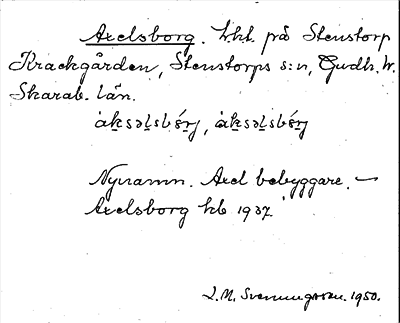 Axelsborg. hkl. på Stenstorp
Krackgården, Stenstorps s:n, Gudh. h.
Skarab. län.
Nynamn. Axel bebyggare. —
Axelsborg kb 1937
L. M. Svenungsson. 1950.